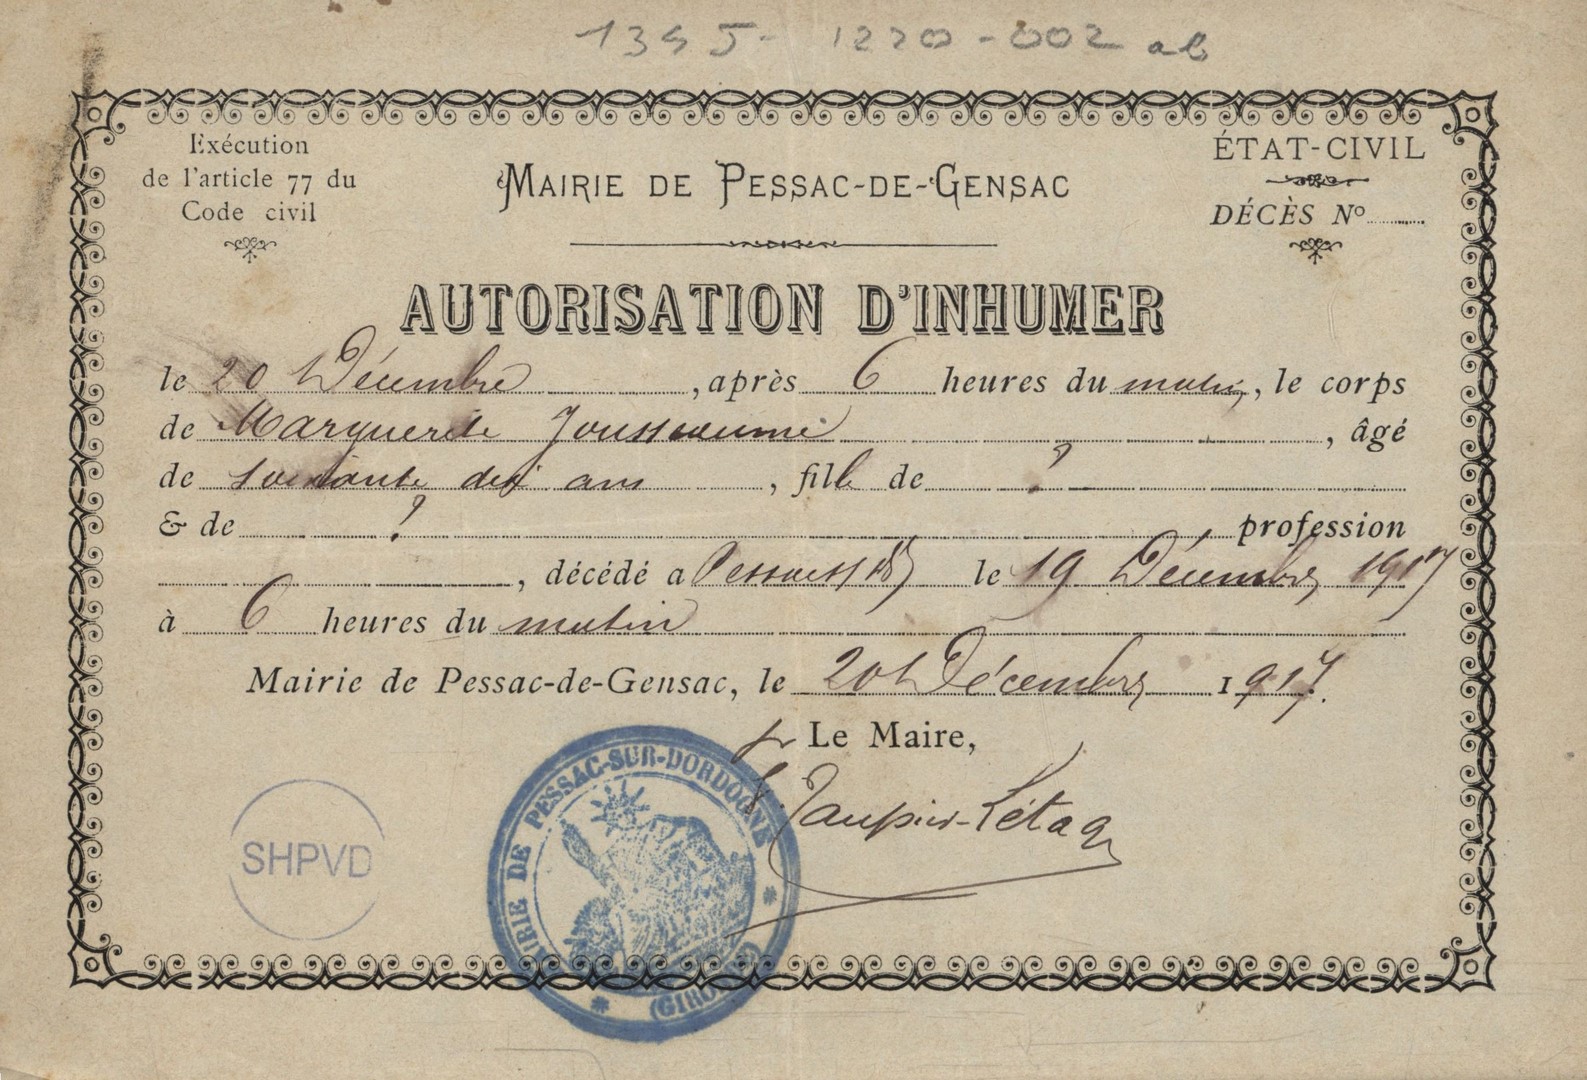 134 J - 1220 - 002 ab
Exécution
de l'article 77 du
Code civil
MAIRIE DE PESSAC-DE-GENSAC
ÉTAT-CIVIL
DÉCÈS No
AUTORISATION D'INHUMER
le 20 Décembre, après 6 heures du matin, le corps
de Marguerite Jousseaume, âgé
de soixante dix ans, fille de ?
& de ? profession
, décédé a le 19 Décembre 1917
à 6 heures du matin
Mairie de Pessac-de-Gensac, le 20 Décembre 1917.
pr Le Maire,
MAIRIE DE PESSAC-SUR-DORDOGNE
(GIRONDE)
SHPVD